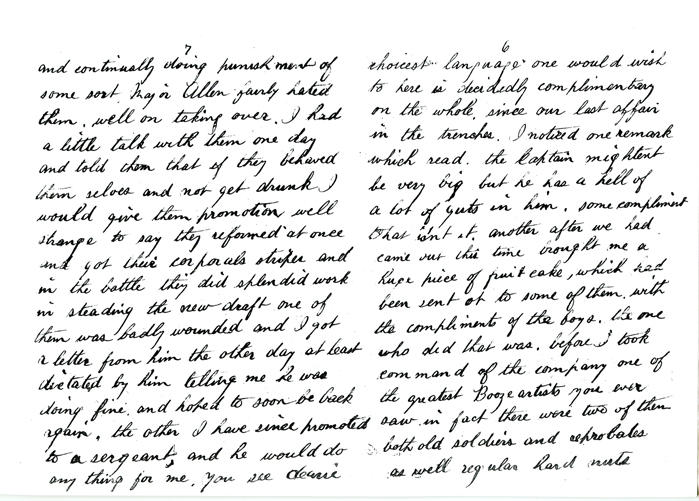 6
choicest language one would wish
to here is decidedly complimentary
on the whole, since our last affair
in the trenches. I noticed one remark
which read. the Captain mightent
be very big but he has a hell of
a lot of guts in him. some compliment
that isnt it. another after we had
came out this time brought me a
huge piece of fruit cake, which had
been sent ot to some of them. with
the compliments of the boys. the one
who did that was. before I took
command of the company one of
the greatest Booze artists you ever
saw. in fact there were two of them
both old soldiers and reprobates
as well regular hard nuts
7
and continually doing punishment of
some sort. Major Allen fairly hated
them. well on taking over. I had
a little talk with them one day
and told them that if they behaved
them selves and not get drunk I
would give them promotion well
strange to say they reformed at once
and got their corporals stripes and
in the battle they did splendid work
in steading the new draft one of
them was badly wounded and I got
a letter from him the other day at least
dictated by him telling me he was
doing fine. and hoped to soon be back
again. the other I have since promoted
to a sergeant, and he would do
any thing for me. you see dearie